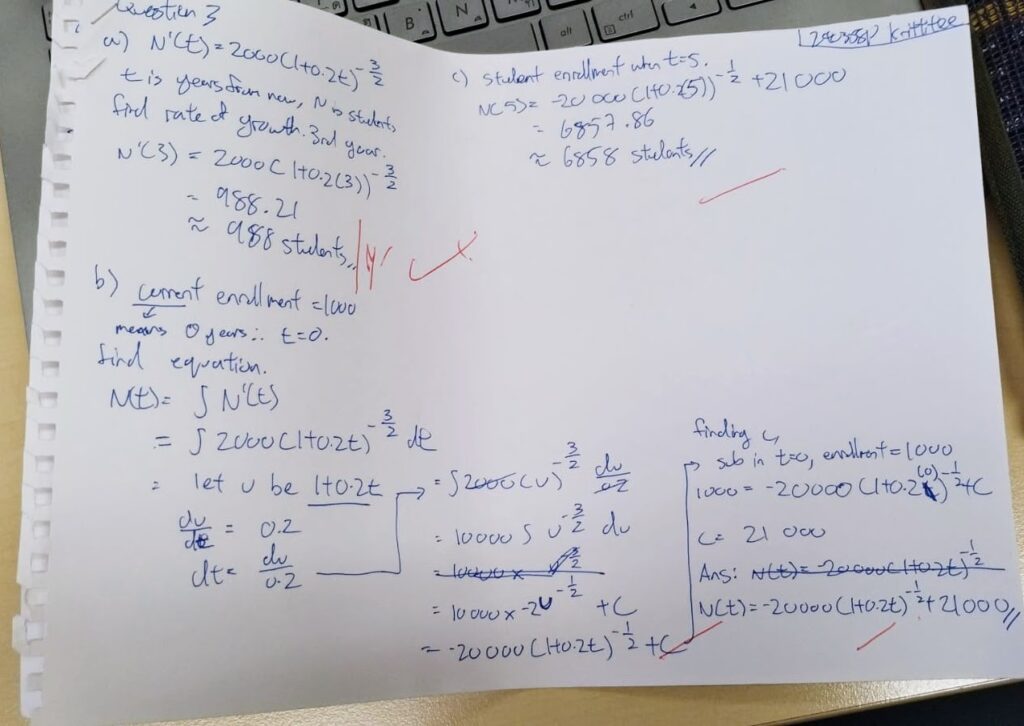 Question 3
a) N'(t) = 2000(1+0.2t)^-3/2
t is years from now, N is students
find rate of growth. 3rd year.
N'(3) = 2000(1+0.2(3))^-3/2
= 988.21
≈ 988 students //
b) current enrollment = 1000
means 0 years ∴ t=0.
find equation.
N(t) = ∫ N'(t)
= ∫ 2000(1+0.2t)^-3/2 dt
= let u be 1+0.2t
du/dt = 0.2
dt = du/0.2
= ∫ 2000(u)^-3/2 du/0.2
= 10000 ∫ u^-3/2 du
= 10000 x -2u^-1/2 + C
= -20000(1+0.2t)^-1/2 + C
finding C,
sub in t=0, enrollment = 1000
1000 = -20000(1+0.2(0))^-1/2 + C
C = 21 000
Ans: N(t) = -20000(1+0.2t)^-1/2
N(t) = -20000(1+0.2t)^-1/2 + 21000 //
c) student enrollment when t=5.
N(5) = -20 000(1+0.2(5))^-1/2 + 21 000
= 6857.86
≈ 6858 students //
B
N
alt
ctrl